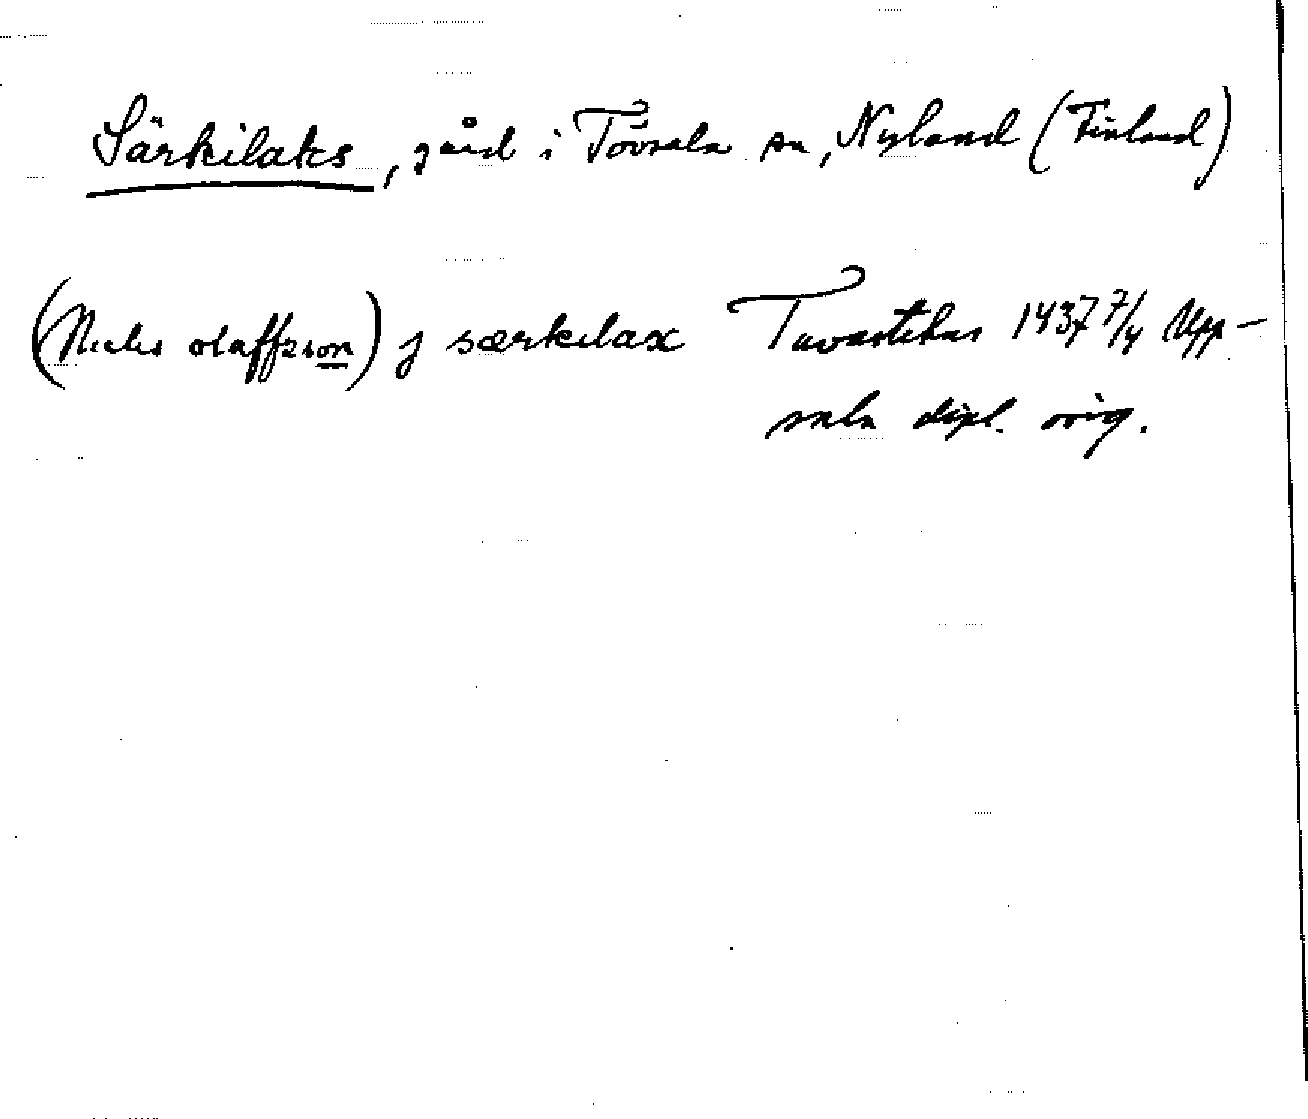 Särkilaks, gård i Tövsala sn, Nyland (Finland)
(Niclis olaffsson) j særkilax Tavastehus 1437 7/4 Upp-
sala dipl. orig.